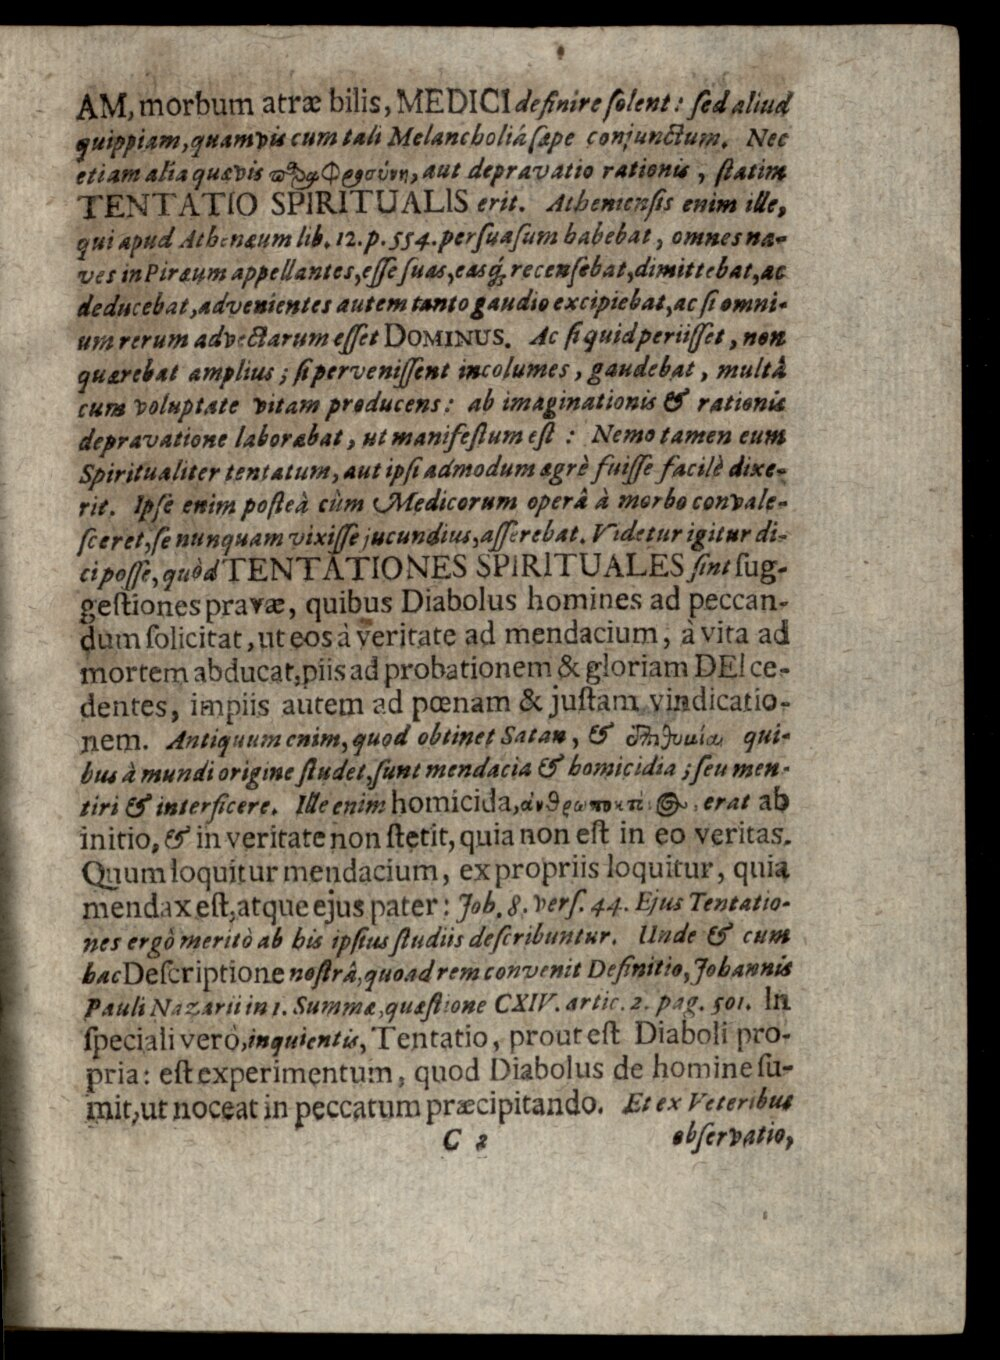 AM, morbum atræ bilis, MEDICI definire ſolent: ſed aliud
quippiam, quamvis cum tali Melancholiá ſæpe conjunctum. Nec
etiam alia quævis παραφροσύνη, aut depravatio rationis, ſtatim
TENTATIO SPIRITUALIS erit. Athenienſis enim ille,
qui apud Athenæum lib. 12. p. 554. perſuaſum habebat, omnes na-
ves in Piræum appellantes, eſſe ſuas, easq́; recenſebat, dimittebat, ac
deducebat, advenientes autem tanto gaudio excipiebat, ac ſi omni-
um rerum advectarum eſſet DOMINUS. Ac ſi quid periiſſet, non
quærebat amplius; ſi perveniſſent incolumes, gaudebat, multâ
cum voluptate vitam producens: ab imaginationis & rationis
depravatione laborabat, ut manifeſtum eſt: Nemo tamen eum
Spiritualiter tentatum, aut ipſi admodum ægrè fuiſſe facilè dixe-
rit. Ipſe enim poſteà cùm Medicorum operâ à morbo convale-
ſceret, ſe nunquam vixiſſe jucundius, aſſerebat. Videtur igitur di-
ci poſſe, quòd TENTATIONES SPIRITUALES ſint ſug-
geſtiones pravæ, quibus Diabolus homines ad peccan-
dum ſolicitat, ut eos à veritate ad mendacium, à vita ad
mortem abducat, piis ad probationem & gloriam DEI ce-
dentes, impiis autem ad pœnam & juſtam vindicatio-
nem. Antiquum enim, quod obtinet Satan, & ἐπιθυμίαι qui-
bus à mundi origine ſtudet, ſunt mendacia & homicidia; ſeu men-
tiri & interficere. Ille enim homicida, ἀνθρωποκτόνος, erat ab
initio, & in veritate non ſtetit, quia non eſt in eo veritas.
Quum loquitur mendacium, ex propriis loquitur, quia
mendax eſt, atque ejus pater: Joh. 8. verſ. 44. Ejus Tentatio-
nes ergò meritò ab his ipſius ſtudiis deſcribuntur. Unde & cum
hac Deſcriptione noſtrâ, quoad rem convenit Definitio, Johannis
Pauli Nazarii in 1. Summæ, quæſtione CXIV. artic. 2. pag. 501. In
ſpeciali verò, inquientis, Tentatio, prout eſt Diaboli pro-
pria: eſt experimentum, quod Diabolus de homine ſu-
mit, ut noceat in peccatum præcipitando. Et ex Veteribus
C 2 obſervatio,